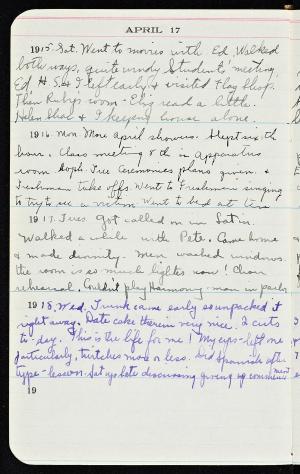 APRIL 17
1915 Sat. Went to movies with Ed. Walked
both ways, quite windy. Students' meeting.
Ed, H.S. & I left early & visited Flag Shop.
Then Ruby's room - Eliz read a little.
Helen Shal & I keeping house alone.
1916. Mon. More April showers. Slept sixth
hour. Class meeting 8th in Apparatus
room. Soph. Tree Ceremonies plans given. &
Freshman take offs. Went to Freshman singing
to try to see a victim. Went to bed at ten
1917. Tues. Got called on in Latin.
Walked a while with Pete. Came home
& made divinity. Men washed windows
the room is so much lighter now! Choir
rehearsal. Couldn't play Harmony - man in parlor
1918. Wed. Trunk came early so unpacked it
right away. Date cake therein very nice. 2 cuts
to-day. This is the life for me! My eyes - left one
particularly, twitches more or less. Did Spanish after
type-lesson. Sat up late discussing giving up commencement
19